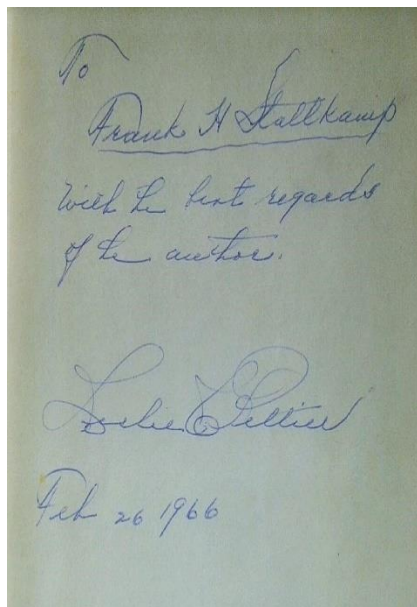 To
Frank H Stallkamp
With the best regards
of the author.
Leslie C Peltier
Feb 26 1966